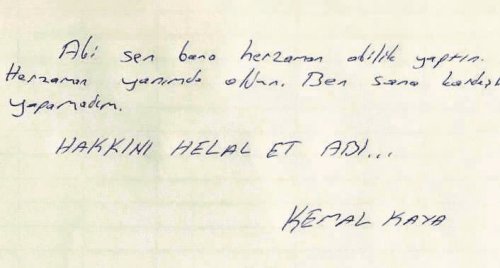 Abi sen bana herzaman abilik yaptın.
Herzaman yanımda oldun. Ben sana kardeşl
yapamadım.
HAKKINI HELAL ET ABİ...
KEMAL KAYA